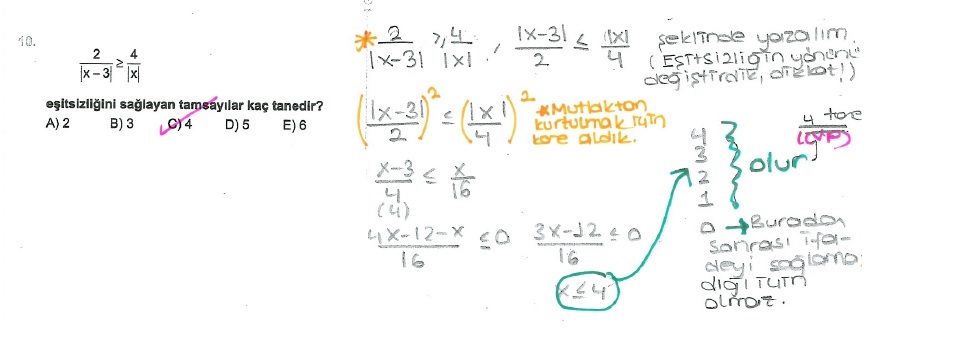 10.
2/|x − 3| ≥ 4/|x|
eşitsizliğini sağlayan tamsayılar kaç tanedir?
A) 2 B) 3 C) 4 D) 5 E) 6
* 2/|x-3| ≥ 4/|x| , |x-3|/2 ≤ |x|/4 şeklinde yazalım.
(Eşitsizliğin yönünü
değiştirdik, dikkat!)
(|x-3|/2)² ≤ (|x|/4)²
* Mutlaktan
kurtulmak için
kare aldık.
x-3/4 ≤ x/16
(4)
4x-12-x/16 ≤ 0 3x-12/16 ≤ 0
x ≤ 4
4
3
2
1
olur
4 tane
(CVP)
0 → Buradan
sonrası ifa-
deyi sağlama-
dığı için
olmaz.